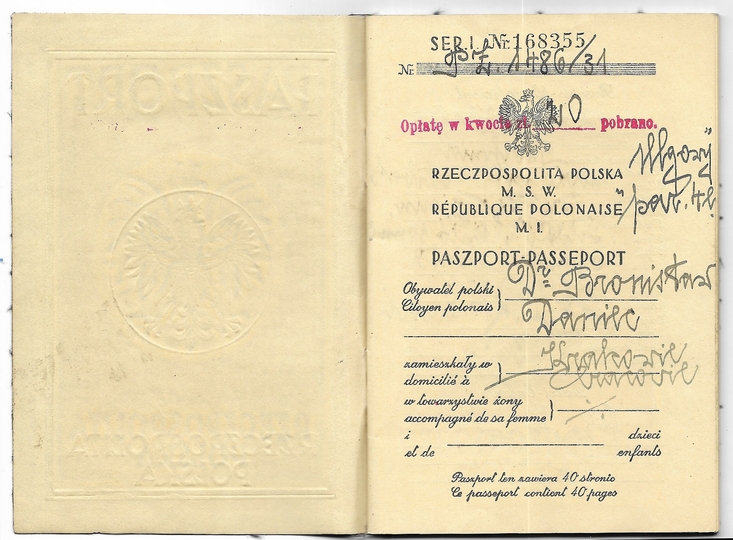 PASZPORT
RZECZPOSPOLITA
POLSKA
SER. I. Nr 168355
Nr. 1486/31
Opłatę w kwocie zł. 20 pobrano.
Ulgowy
par. 4
RZECZPOSPOLITA POLSKA
M. S. W.
RÉPUBLIQUE POLONAISE
M. I.
PASZPORT-PASSEPORT
Obywatel polski Dr. Bronisław
Citoyen polonais Daniec
zamieszkały w Krakowie
domicilié à Cracovie
w towarzystwie żony
accompagné de sa femme
i dzieci
et de enfants
Paszport ten zawiera 40 stronic
Ce passeport contient 40 pages